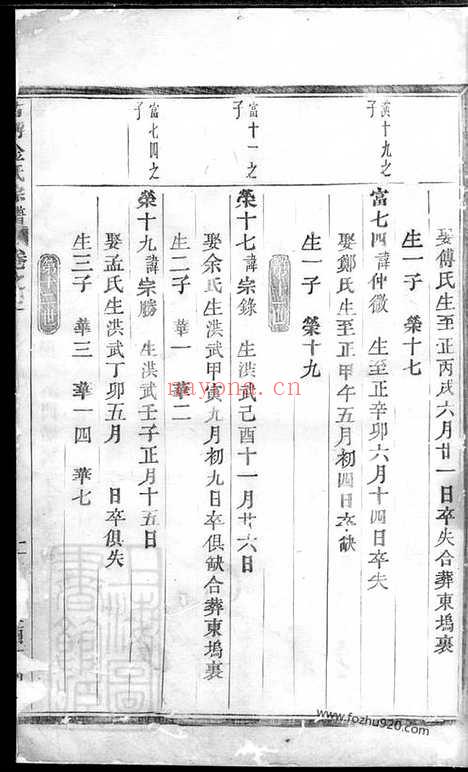 娶傅氏生至正丙戌六月廿一日卒失合葬東塢裏
生一子 榮十七
演十九之
子
富七四諱仲微 生至正辛卯六月十四日卒失
娶鄭氏生至正甲午五月初四日卒缺
生一子 榮十九
富十一之
子
榮十七諱宗錄 生洪武己酉十一月廿六日
娶余氏生洪武甲寅九月初九日卒俱缺合葬東塢裏
生二子 華一 華二
富七四之
子
榮十九諱宗勝 生洪武壬子正月十五日
娶孟氏生洪武丁卯五月 日卒俱失
生三子 華三 華一四 華七
第十二世
金氏宗譜
nayona.cn
www.fozhu920.com